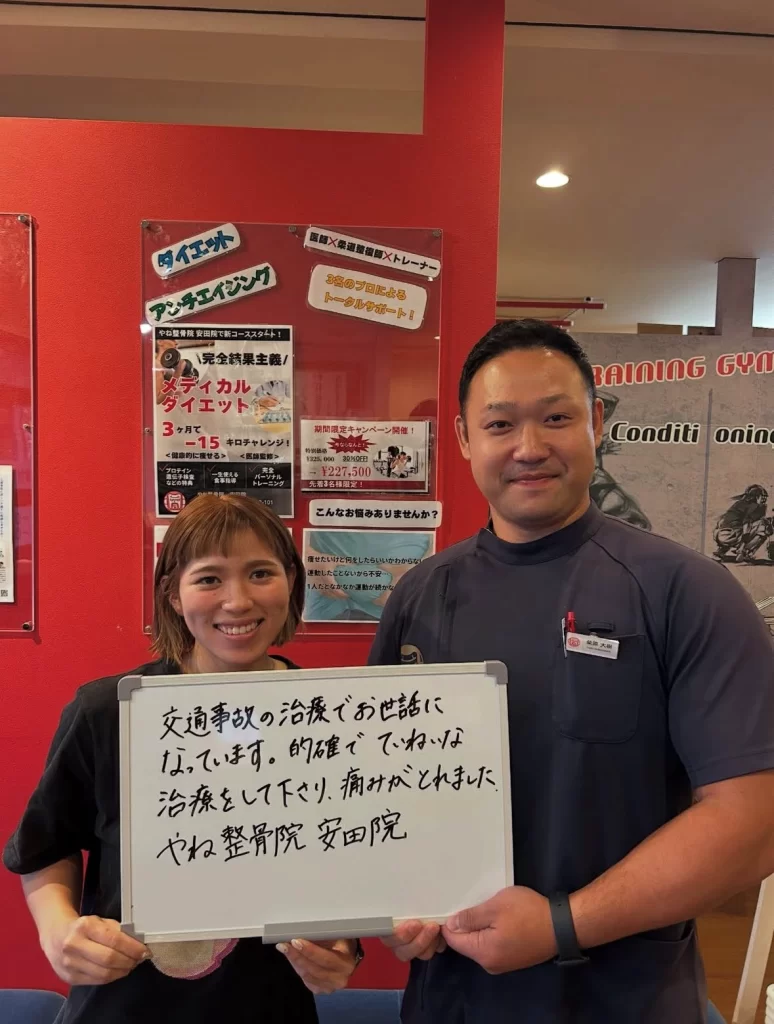 ダイエット
アンチエイジング
医師×柔道整復師×トレーナー
3名のプロによる
トータルサポート！
やね整骨院 安田院で新コーススタート！
\完全結果主義/
メディカル
ダイエット
3ヶ月で
-15キロチャレンジ！
<健康的に痩せる> <医師監修>
プロテイン
遺伝子検査
などの特典
一生使える
食事指導
完全
パーソナル
トレーニング
期間限定キャンペーン開催！
特別価格
今ならなんと！
¥325,000 30%OFF!
→ ¥227,500
先着3名様限定！
こんなお悩みありませんか？
痩せたいけど何をしたらいいかわからない
運動したことないから不安
1人だとなかなか運動が続かな
RAINING GYM
Conditi onin
交通事故の治療でお世話に
なっています。的確で ていねいな
治療をして下さり、痛みがとれました。
やね整骨院 安田院